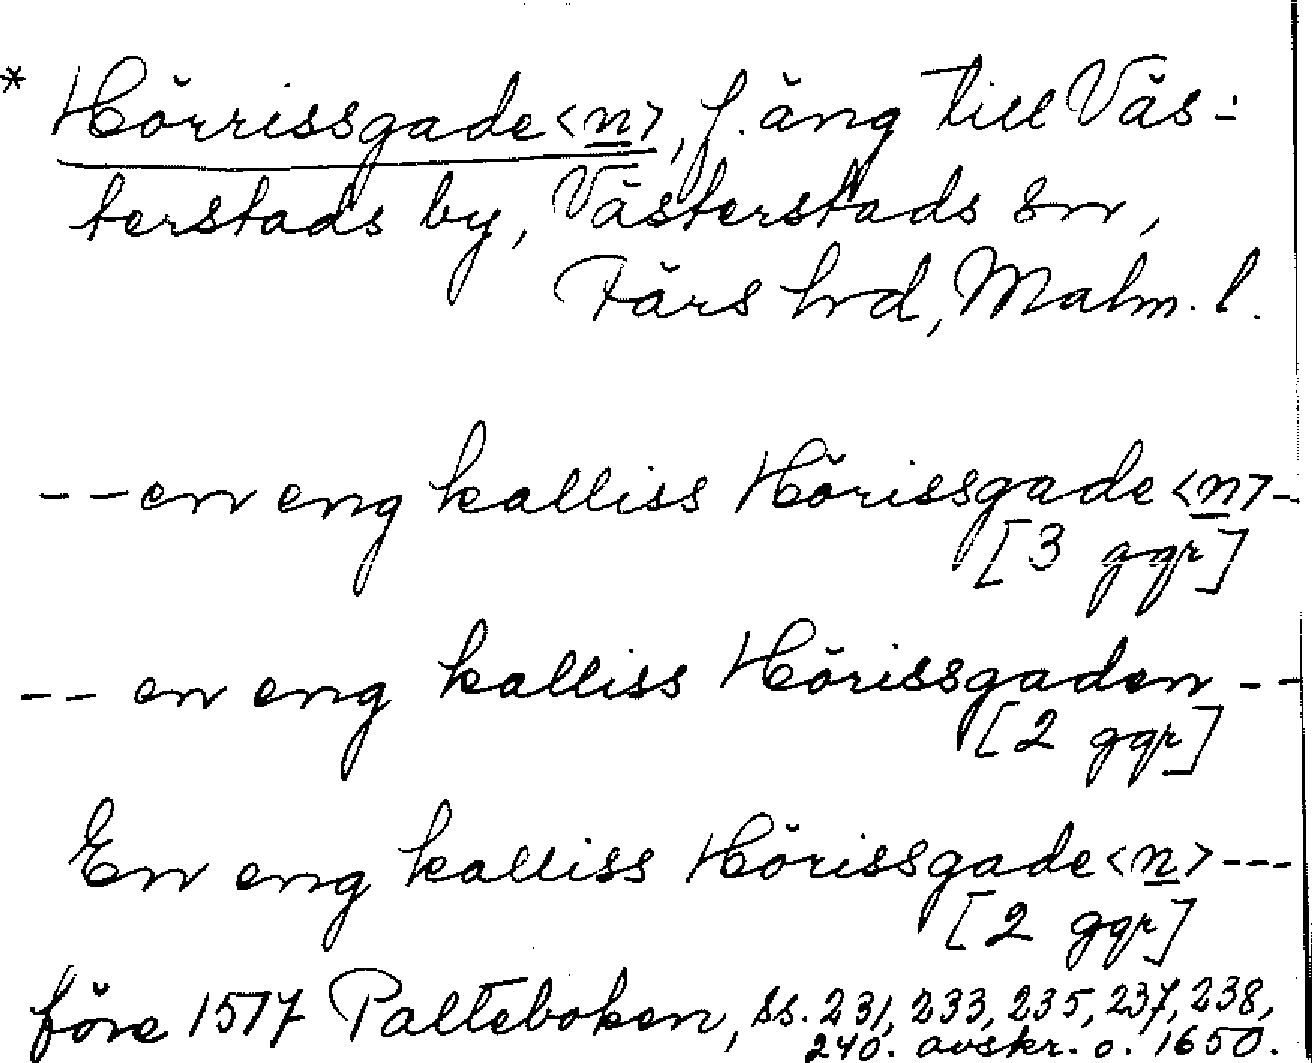 * Hörrissgade<n>, f. äng till Väs-
terstads by, Västerstads sn,
Färs hrd, Malm. l.
-- en eng kalliss Hörissgade<n> -
[3 ggr]
-- en eng kalliss Hörissgaden --
[2 ggr]
En eng kalliss Hörissgade<n> ---
[2 ggr]
före 1577 Palteboken, ss. 231, 233, 235, 237, 238,
240. avskr. o. 1650.